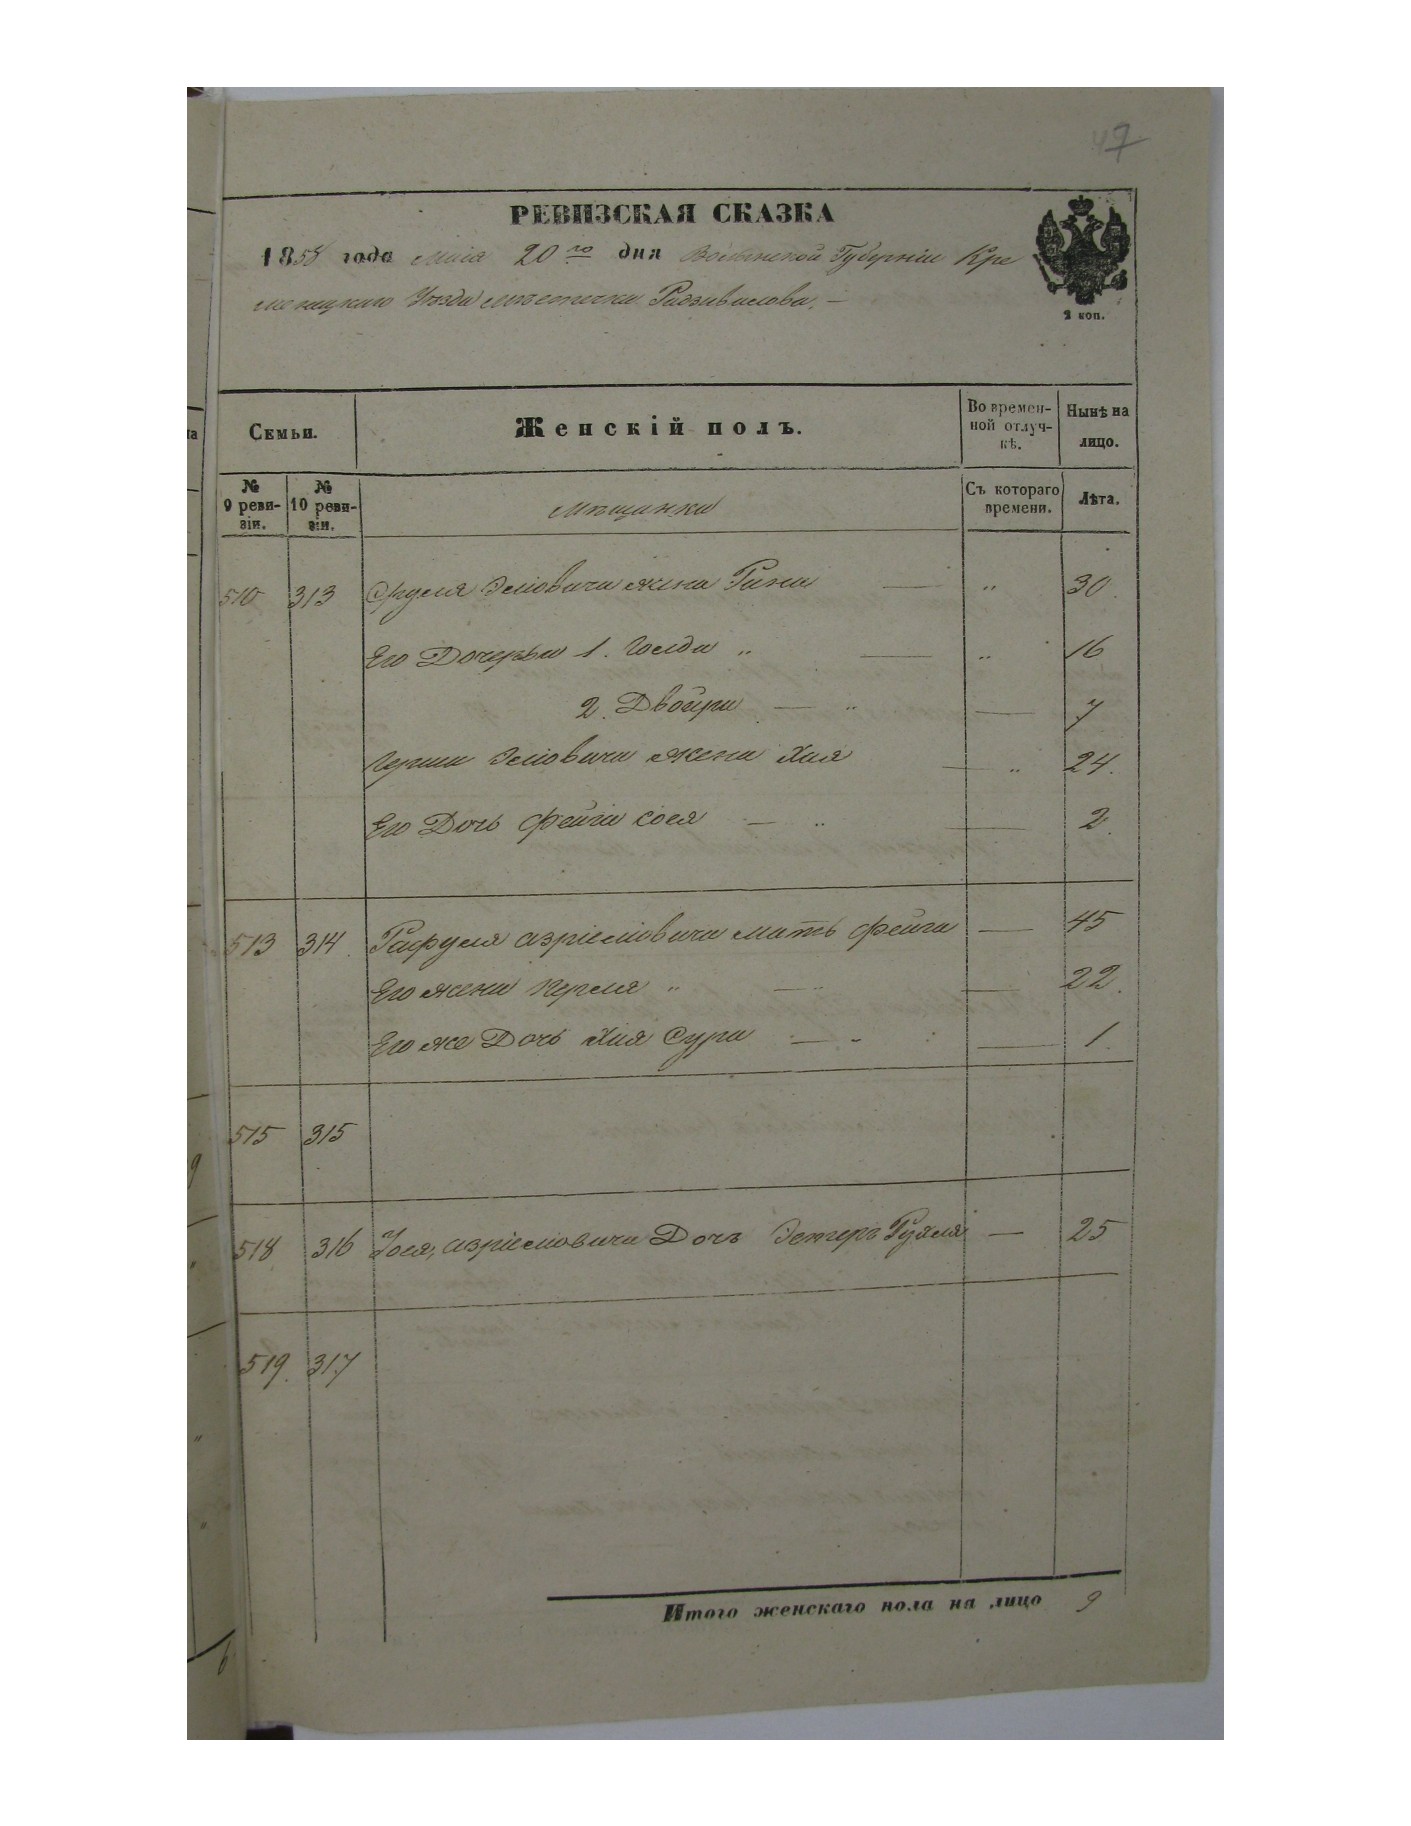 47
РЕВИЗСКАЯ СКАЗКА
1858 года маія 20го дня Волынской Губерніи Кре
менецкаго Уѣзда мѣстечка Радзивилова. —
2 коп.
Семьи. Женскій полъ. Во времен-ной отлуч-кѣ. Нынѣ на лицо.
№ 9 реви-зіи. № 10 реви-зіи. Мѣщанки Съ котораго времени. Лѣта.
510 313 Сруля Эліовича жена Рана — „ 30.
Его Дочерьи 1. Голда „ — „ 16
2. Двойра — „ — 7
Герша Эліовича жена Хая — „ 24.
Его Дочь Фейга Сося — „ — 2.
513 314. Рафуля Азріеліовича мать Фейга — 45
Его жена Перля „ — „ — 22.
Его же Дочь Хая Сура — „ — 1.
515 315
518 316 Іося Азріеліовича Дочь Эстеръ Рухля — 25
519. 317
Итого женскаго пола на лицо 9